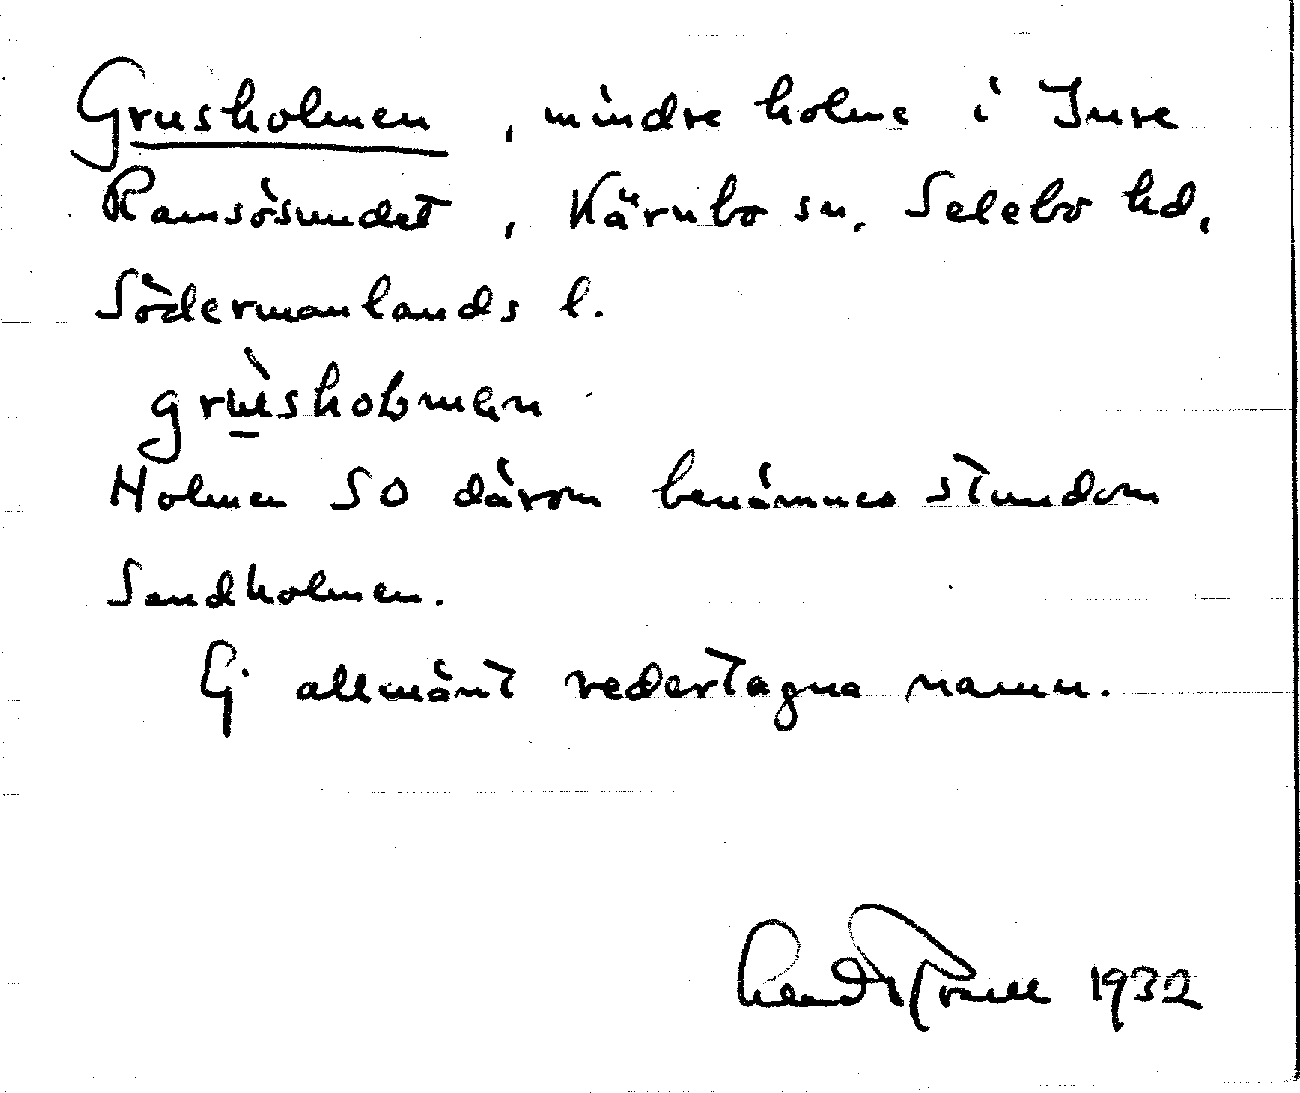 Grusholmen, mindre holme i Inre
Ramsösundet, Kärnbo sn. Selebo hd,
Södermanlands l.
grùsholmen
Holmen SO därom benämnes stundom
Sandholmen.
Ej allmänt vedertagna namn.
1932